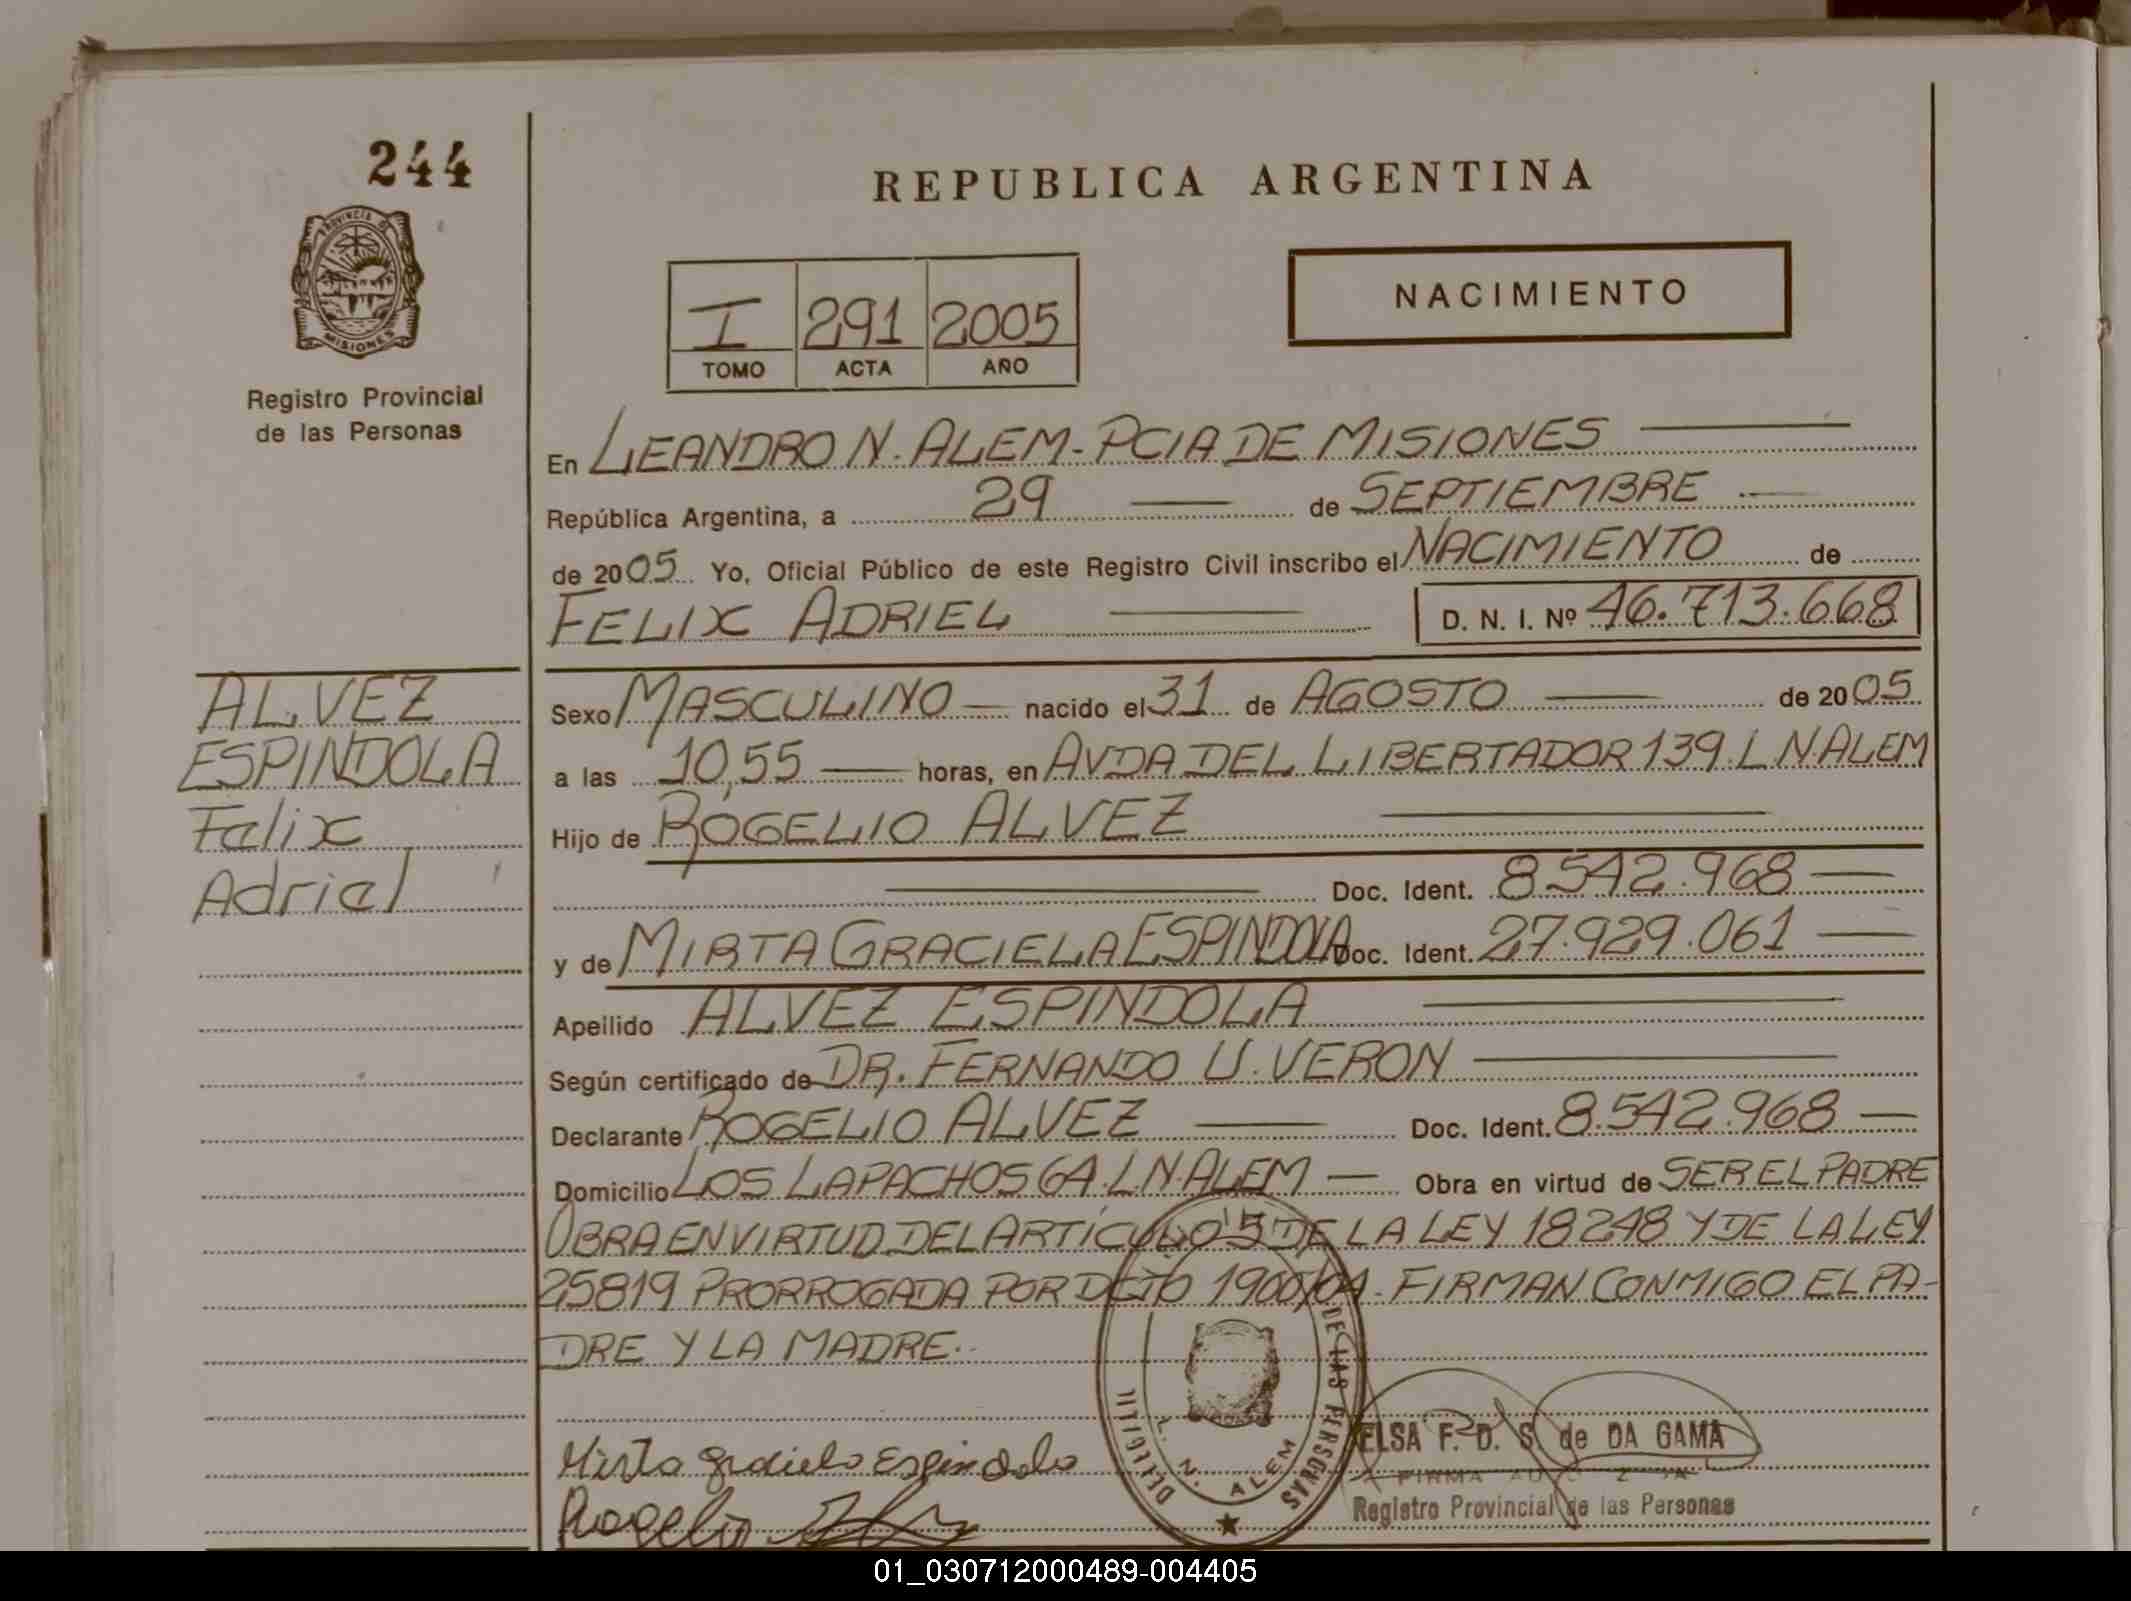 244
PROVINCIA DE
MISIONES
Registro Provincial
de las Personas
REPUBLICA ARGENTINA
I 291 2005
TOMO ACTA AÑO
NACIMIENTO
En LEANDRO N. ALEM - PCIA DE MISIONES
República Argentina, a 29 de SEPTIEMBRE
de 2005 Yo, Oficial Público de este Registro Civil inscribo el NACIMIENTO de
FELIX ADRIEL D. N. I. Nº 46.713.668
ALVEZ
ESPINDOLA
Felix
Adriel
Sexo MASCULINO nacido el 31 de AGOSTO de 2005
a las 10,55 horas, en AVDA DEL LIBERTADOR 139. L.N.ALEM
Hijo de ROGELIO ALVEZ
Doc. Ident. 8.542.968
y de MIRTA GRACIELA ESPINDOLA Doc. Ident. 27.929.061
Apellido ALVEZ ESPINDOLA
Según certificado de DR. FERNANDO U. VERON
Declarante ROGELIO ALVEZ Doc. Ident. 8.542.968
Domicilio LOS LAPACHOS 64. L.N.ALEM Obra en virtud de SER EL PADRE
OBRA EN VIRTUD DEL ARTÍCULO 5 DE LA LEY 18248 Y DE LA LEY
25819 PRORROGADA POR DCTO 1900/04. FIRMAN CONMIGO EL PA-
DRE Y LA MADRE.
DE LAS PERSONAS
L. N. ALEM
Mirta Graciela Espindola
Rogelio
ELSA F. D. S. de DA GAMA
Registro Provincial de las Personas
01_030712000489-004405